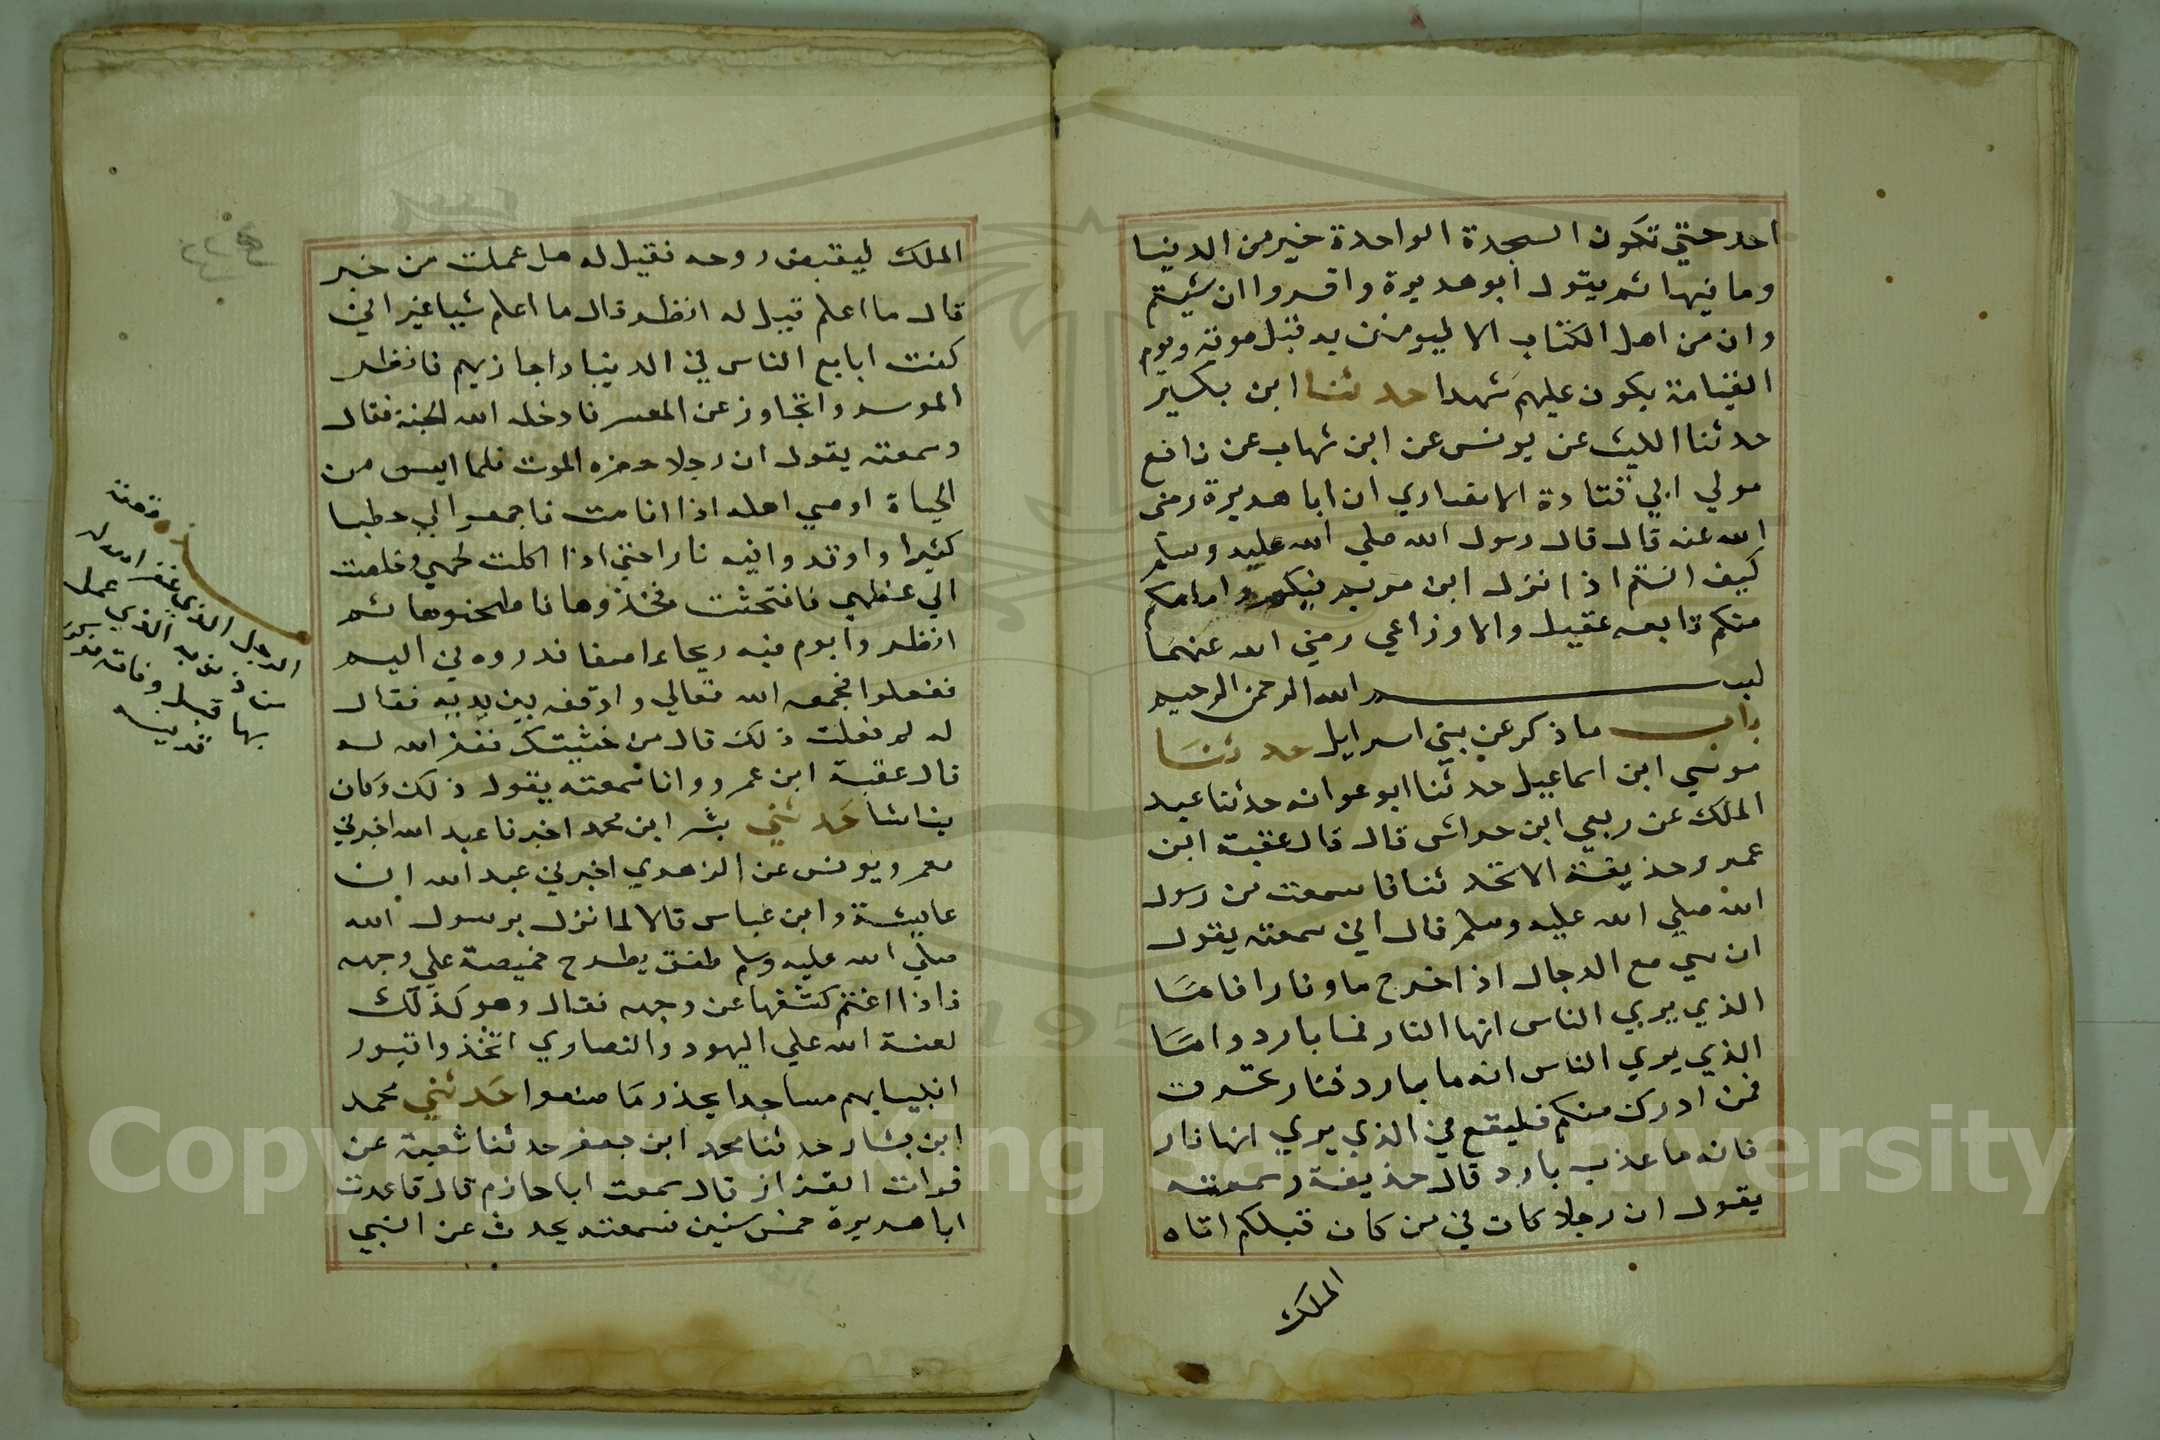 احد حتي تكون السجدة الواحدة خير من الدنيا
وما فيها ثم يقول ابو هريرة واقروا ان شيتم
وان من اهل الكتاب الا ليومنن به قبل موته ويوم
القيامة يكون عليهم شهدا حدثنا ابن بكير
حدثنا الليث عن يونس عن ابن شهاب عن نافع
مولي ابي قتادة الانصاري ان ابا هريرة رضي
الله عنه قال قال رسول الله صلي الله عليه وسلم
كيف انتم اذا نزل ابن مريم فيكم وامامكم
منكم تابعه عقيل والاوزاعي رضي الله عنهما
بسم الله الرحمن الرحيم
باب ما ذكر عن بني اسرايل حدثنا
موسي ابن اسماعيل حدثنا ابو عوانه حدثنا عبد
الملك عن ربعي ابن حراش قال قال عقبة ابن
عمرو لحذيفة الا تحدثنا ما سمعت من رسول
الله صلي الله عليه وسلم قال اني سمعته يقول
ان مع الدجال اذا خرج ما ونارا فاما
الذي يري الناس انها النار فما بارد واما
الذي يري الناس انه ما بارد فنار تحرق
فمن ادرك منكم فليقع في الذي يري انها نار
فانه ما عذب بارد قال حذيفة وسمعته
يقول ان رجلا كان في من كان قبلكم اتاه
الملك
الملك ليقبض روحه فقيل له هل عملت من خير
قال ما اعلم قيل له انظر قال ما اعلم شيا غير اني
كنت ابايع الناس في الدنيا واجازيهم فانظر
الموسر واتجاوز عن المعسر فادخله الله الجنة فقال
وسمعته يقول ان رجلا حضره الموت فلما ايس من
الحياة اوصي اهله اذا انا مت فاجمعوا لي حطبا
كثيرا واوقدوا فيه نارا حتي اذا اكلت لحمي وخلصت
الي عظمي فامتحشت فخذوها فاطحنوها ثم
انظروا يوم فيه ريحا عاصفا فذروه في اليم
ففعلوا فجمعه الله تعالي واوقفه بين يديه فقال
له لم فعلت ذلك قال من خشيتك فغفر الله له
قال عقبة ابن عمرو وانا سمعته يقول ذلك وكان
نباشا حدثني بشر ابن محمد اخبرنا عبد الله اخبرني
معمر ويونس عن الزهري اخبرني عبد الله ان
عايشة وابن عباس قالا لما نزل برسول الله
صلي الله عليه وسلم طفق يطرح خميصة علي وجهه
فاذا اغتم كشفها عن وجهه فقال وهو كذلك
لعنة الله علي اليهود والنصاري اتخذوا قبور
انبيايهم مساجدا يحذر ما صنعوا حدثني محمد
ابن بشار حدثنا محمد ابن جعفر حدثنا شعبة عن
فرات القزاز قال سمعت ابا حازم قال قاعدت
ابا هريرة خمس سنين فسمعته يحدث عن النبي
قصة
الرجل الذي غفر الله له
الذي عمل
بها قبل وفاته
Copyright © King Saud University
195